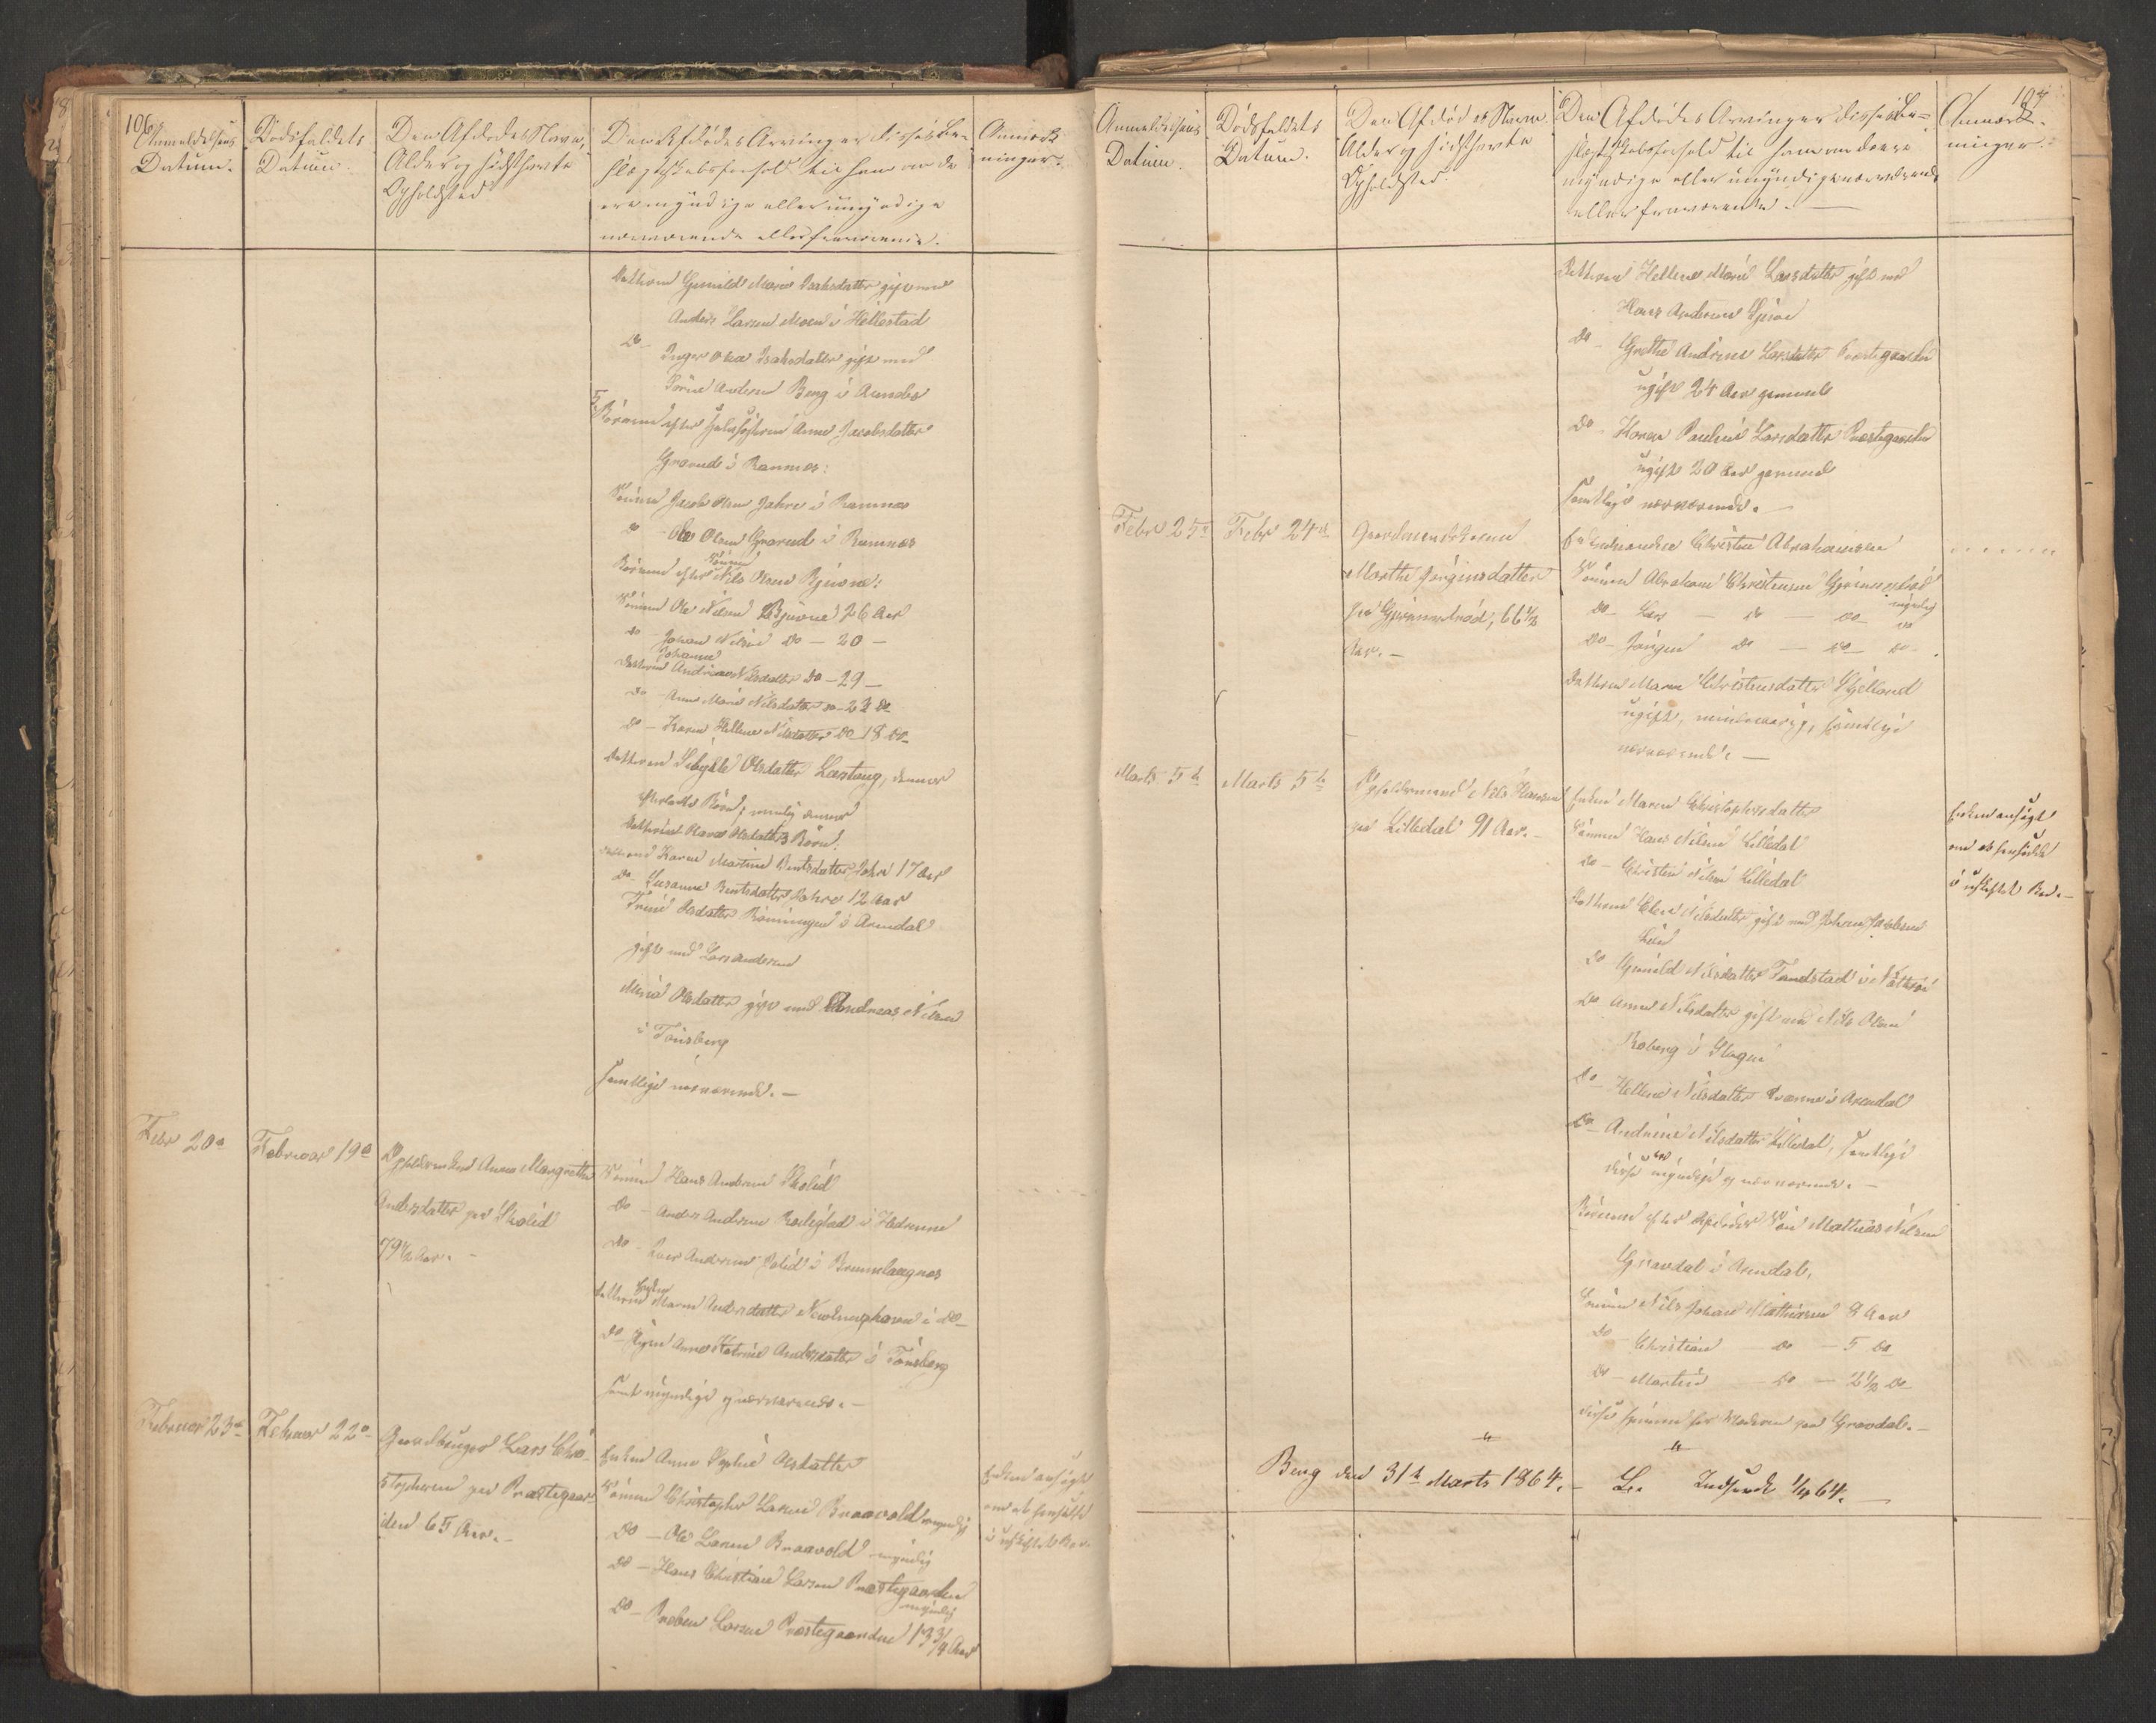 106.
Anmeldelsens
Datum.
Dødsfaldets
Datum.
Den Afdødes Navn,
Alder og sidsthavte
Opholdsted
Den Afdødes Arvinger disses Be-
slægtskabsforhold til ham om de
ere myndige eller umyndige
nærværende eller fraværende.
Anmærk
ninger.
Datteren Gunild Marie Isaksdatter gift med
Anders Larsen Moen i Hellestad
Do - Inger Olea Isaksdatter gift med
Sørine Andersen Berg i Arendal
5, Børnene efter Halvsøsteren Anne Jacobsdatter
Græsrud i Ramnes:
Sønnen Jacob Olsen Jahre i Ramnes
do - Ole Olsen Græsrud i Ramnes
Børnene efter Sønnen Nils Olsen Bjuone:
Sønnen Ole Nilsen Bjuone 26 Aar
do - Johan Nilsen do - 20 -
Datteren Johanne Andrine Nilsdatter do - 29 -
do - Anne Marie Nilsdatter do - 23 do
do - Karen Hellene Nilsdatter do 18 do
Datteren Sibylle Olsdatter Lastang, dennes
efterladte Børn, nemlig dennes
Datteren Maren Olsdatters Børn:
Datteren Karen Martine Berntsdatter Jahre 17 Aar
do - Susanne Berntsdatter Jahre 12 Aar
Trine Olsdatter Rønningen i Arendal
gift med Lars Andersen
Maria Olsdatter gift med Andreas Nilsen
i Tønsberg
samtlige nærværende. -
Febr 20de
Februar 19de
Opholdsenken Anne Margrethe
Andersdatter paa Skolid
79 1/2 Aar. -
Sønnen Hans Andersen Skolid
Do - Anders Andersen i Hedrum
Do - Andersen i Brunlaugnes
Datteren Enken Maren Andersdatter i do
do - Anne Katrine Andersdatter i Tønsberg
samt myndige og nærværende. -
Februar 23de
Februar 22de
Gaardbruger Lars Chri-
stophersen paa Præstegaar-
den 65 Aar. -
Enken Anne Sophie Olsdatter
Sønnen Christopher Larsen Braavold myndig
Do - Ole Larsen Braavold myndig
do - Hans Christian Larsen Præstegaarden
myndig
do - Preben Larsen Præstegaarden 13 3/4 Aar
Enken ansøgt
om at hensidde
i uskiftet Bo. -
107
Anmeldelsens
Datum.
Dødsfaldets
Datum.
Den Afdødes Navn
Alder og sidsthavte
Opholdsted.
Den Afdødes Arvinger disses Be-
slægtskabsforhold til ham om de ere
myndige eller umyndige nærværende
eller fraværende. -
Anmærk-
ninger.
Datteren Hellene Marie Larsdatter gift med
Hans Andersen
do - Grethe Andrine Larsdatter Præstegaarden
ugift 24 Aar gammel
do - Karen Pauline Larsdatter Præstegaarden
ugift 20 Aar gammel
samtlige nærværende. -
Febr 25de
Febr 24de
Gaardmandskonen
Marthe Jørginsdatter
paa Gjennestad, 66 1/2
Aar. -
Enkemanden Christen Abrahamsen
Sønnen Abraham Christensen Gjennestad
myndig
do - Lars - do - do - do
do - Jørgen do - do - do -
Datteren Maren Christensdatter Skjelland
ugift, mindreaarig, samtlige
nærværende. -
Marts 5te
Marts 5te
Opholdsmand Nils Hansen
paa Lilledal 91 Aar. -
Enken Maren Christophersdatter
Sønnen Hans Nilsen Lilledal
do - Christen Nilsen Lilledal
Datteren Elen Nilsdatter gift med Johan Jacobsen
do Gunild Nilsdatter Tandstad i Nøtterø
do Anne Nilsdatter gift med Nils Olsen
Roberg i Slagen
do - Hellene Nilsdatter i Arendal
do - Andrine Nilsdatter Lilledal, samtlige
disse ere myndige og nærværende. -
Børnene efter afdøde Søn Mathias Nilsen
Gravdal i Arendal,
Sønnen Nils Johan Mathiasen 8 Aar
do - Christian - do - 5 do
do - Martin - do - 2 1/2 do
disse hjemme hos Moderen paa Gravdal. -
Enken ansøgt
om at hensidde
i uskiftet Bo. -
Berg den 31te Marts 1864. -
L. Indsendt 1/4 64. -